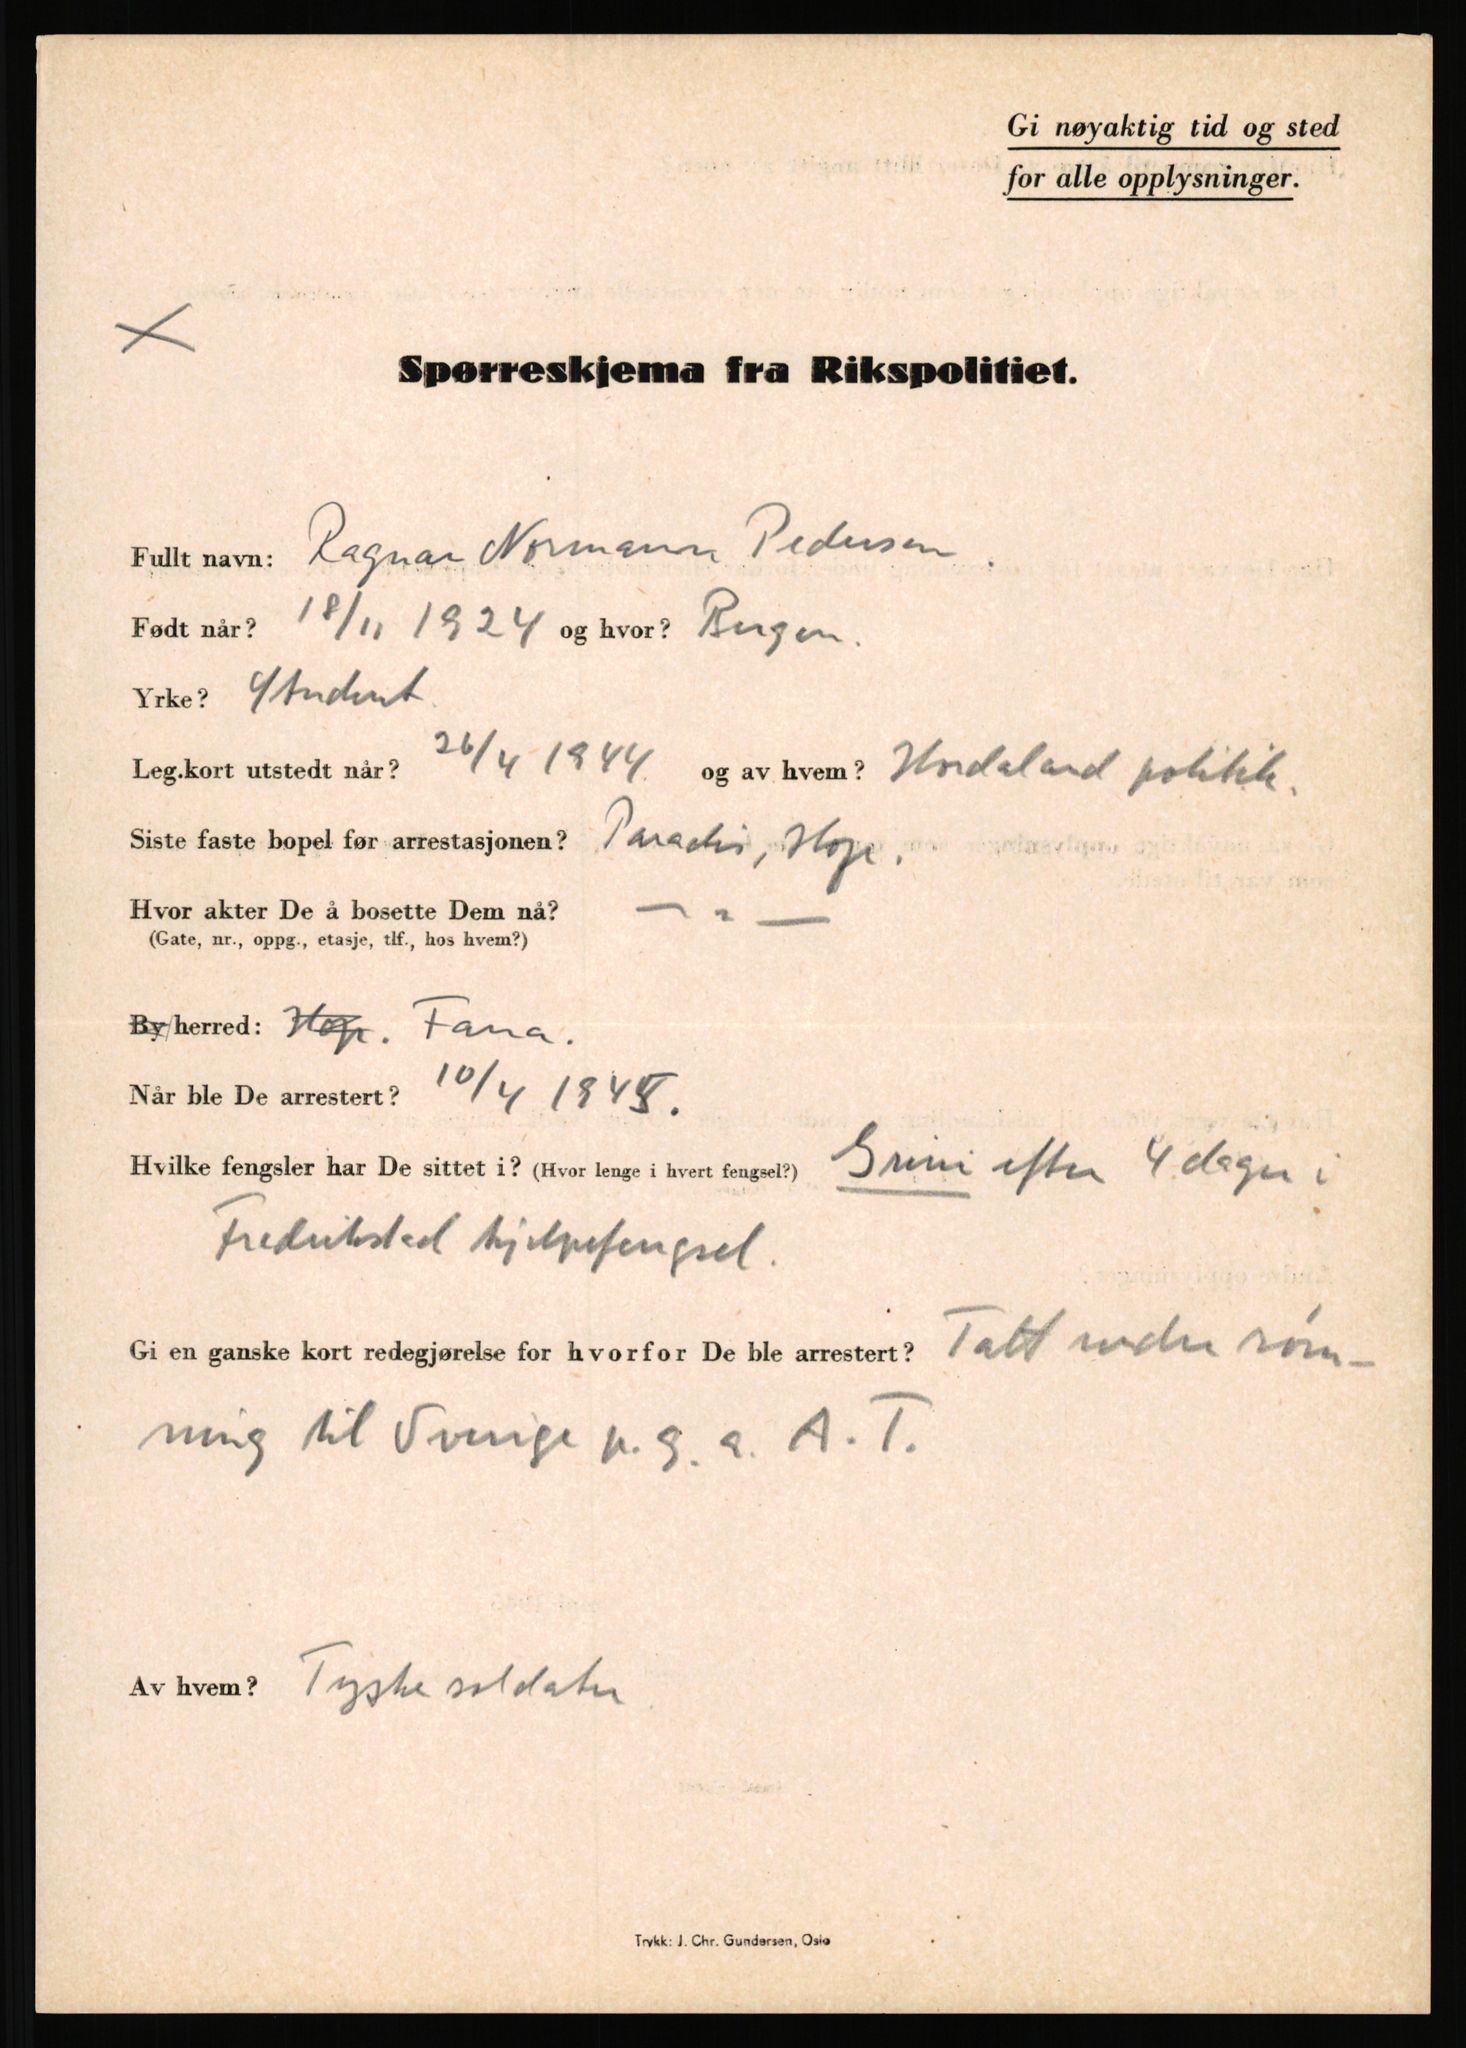 Gi nøyaktig tid og sted
for alle opplysninger.
Spørreskjema fra Rikspolitiet.
Fullt navn: Ragnar Normann Pedersen.
Født når? 18/11 1924 og hvor? Bergen.
Yrke? Student
Leg.kort utstedt når? 26/4 1944 og av hvem? Hordaland politik.
Siste faste bopel før arrestasjonen? Paradis, Hop.
Hvor akter De å bosette Dem nå? — " —
(Gate, nr., oppg., etasje, tlf., hos hvem?)
By/herred: Hop. Fana.
Når ble De arrestert? 10/4 1945.
Hvilke fengsler har De sittet i? (Hvor lenge i hvert fengsel?) Grini efter 4 dager i
Fredrikstad hjelpefengsel.
Gi en ganske kort redegjørelse for hvorfor De ble arrestert? Tatt under røm-
ning til Sverige p.g.a. A.T.
Av hvem? Tyske soldater
Trykk: J. Chr. Gundersen, Oslo